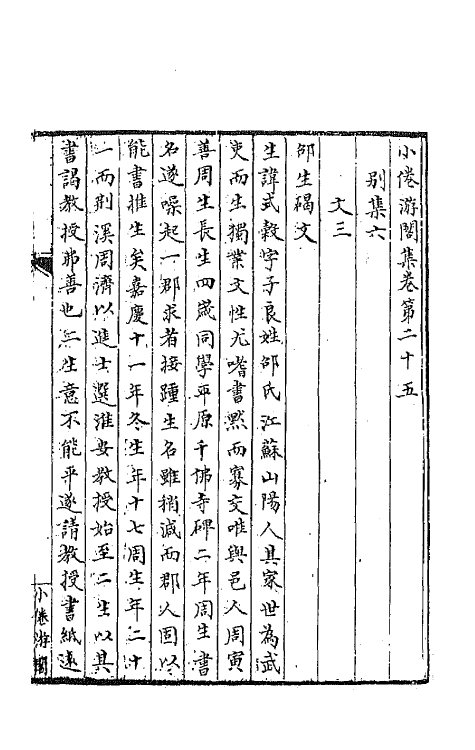 小倦游閣集卷第二十五
別集六
文三
邵生碣文
生諱式穀字子良姓邵氏江蘇山陽人其家世為武
吏而生獨業文性尤嗜書黙而寡交唯與邑人周寅
善周生長生四歲同學平原千佛寺碑二年周生書
名遂噪起一郡求者接踵生名雖稍減而郡人固以
能書推生矣嘉慶十一年冬生年十七周生年二十
一而荆溪周濟以進士選淮安教授始至二生以其
書謁教授弗善也二生意不能平遂請教授書紙遠
小倦游閣